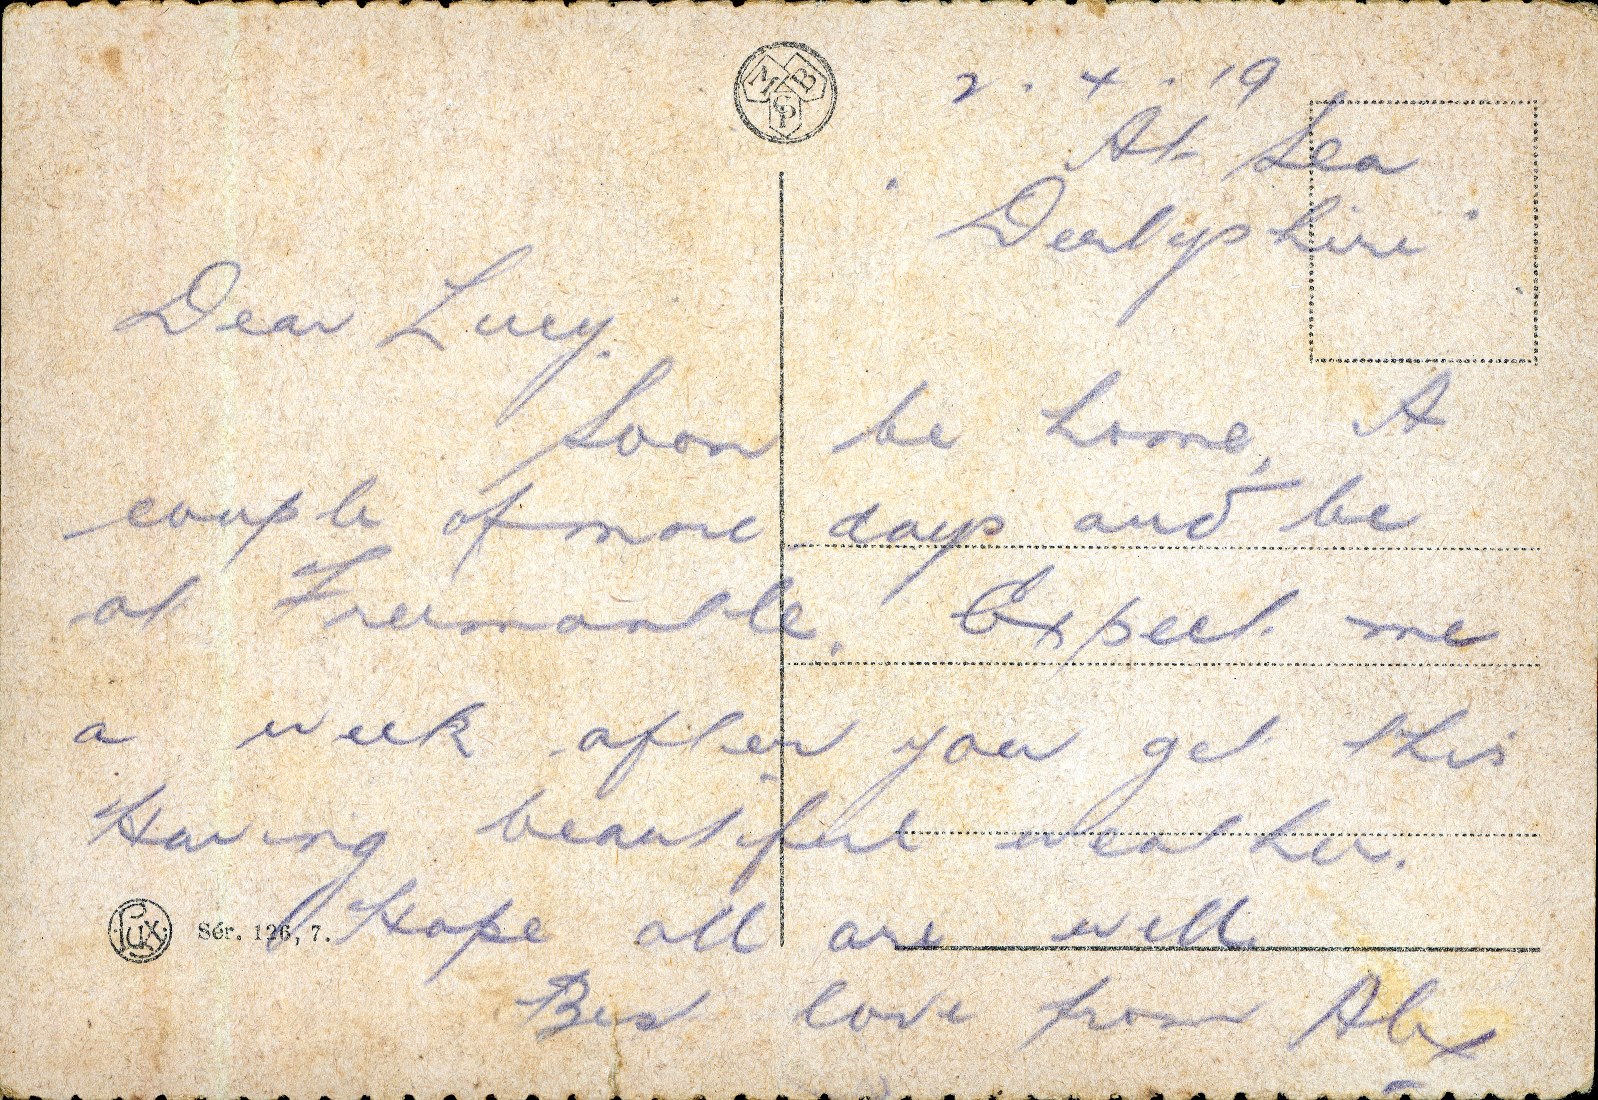 2. 4. 19
At Sea
"Derbyshire"
Dear Lucy.
Soon be home, A
couple of more days and be
at Fremantle. Expect me
a week after you get this
Having beautiful weather.
Hope all are well
Best love from Alex
MBPS
Lux Sér. 126, 7.